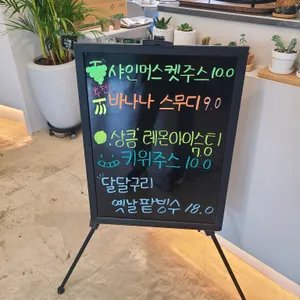 샤인머스켓주스 10.0
추천
바나나 스무디 9.0
상큼 레몬아이스티
7.0
키위주스 10.0
달달구리
옛날팥빙수 18.0